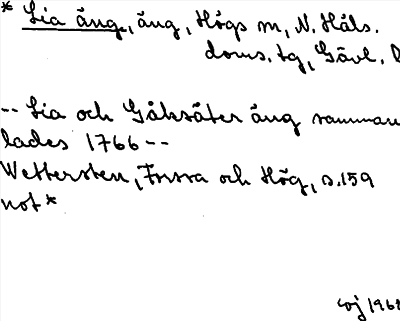 * Lia äng, äng, Högs sn, N. Häls.
doms. tg, Gävl. l
-- Lia och Gåksäter äng samman
lades 1766 --
Wettersten, Forsa och Hög, s. 159
not *
1961